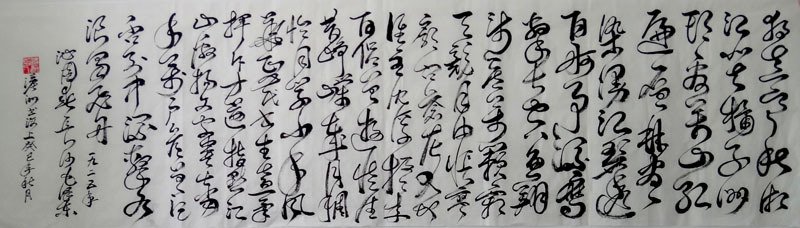 独立寒秋湘
江北去橘子洲
头看万山红
遍层林尽
染漫江碧透
百舸争流鹰
击长空鱼翔
浅底万类霜
天竞自由怅寥
廓问苍茫大地
谁主沉浮携来
百侣曾游忆往昔
峥嵘岁月稠
恰同学少年风
华正茂书生意气
挥斥方遒指点江
山激扬文字粪土当
年万户侯曾记
否到中流击水
浪遏飞舟 一九二五年
沁园春长沙毛泽东
上癸巳年秋月